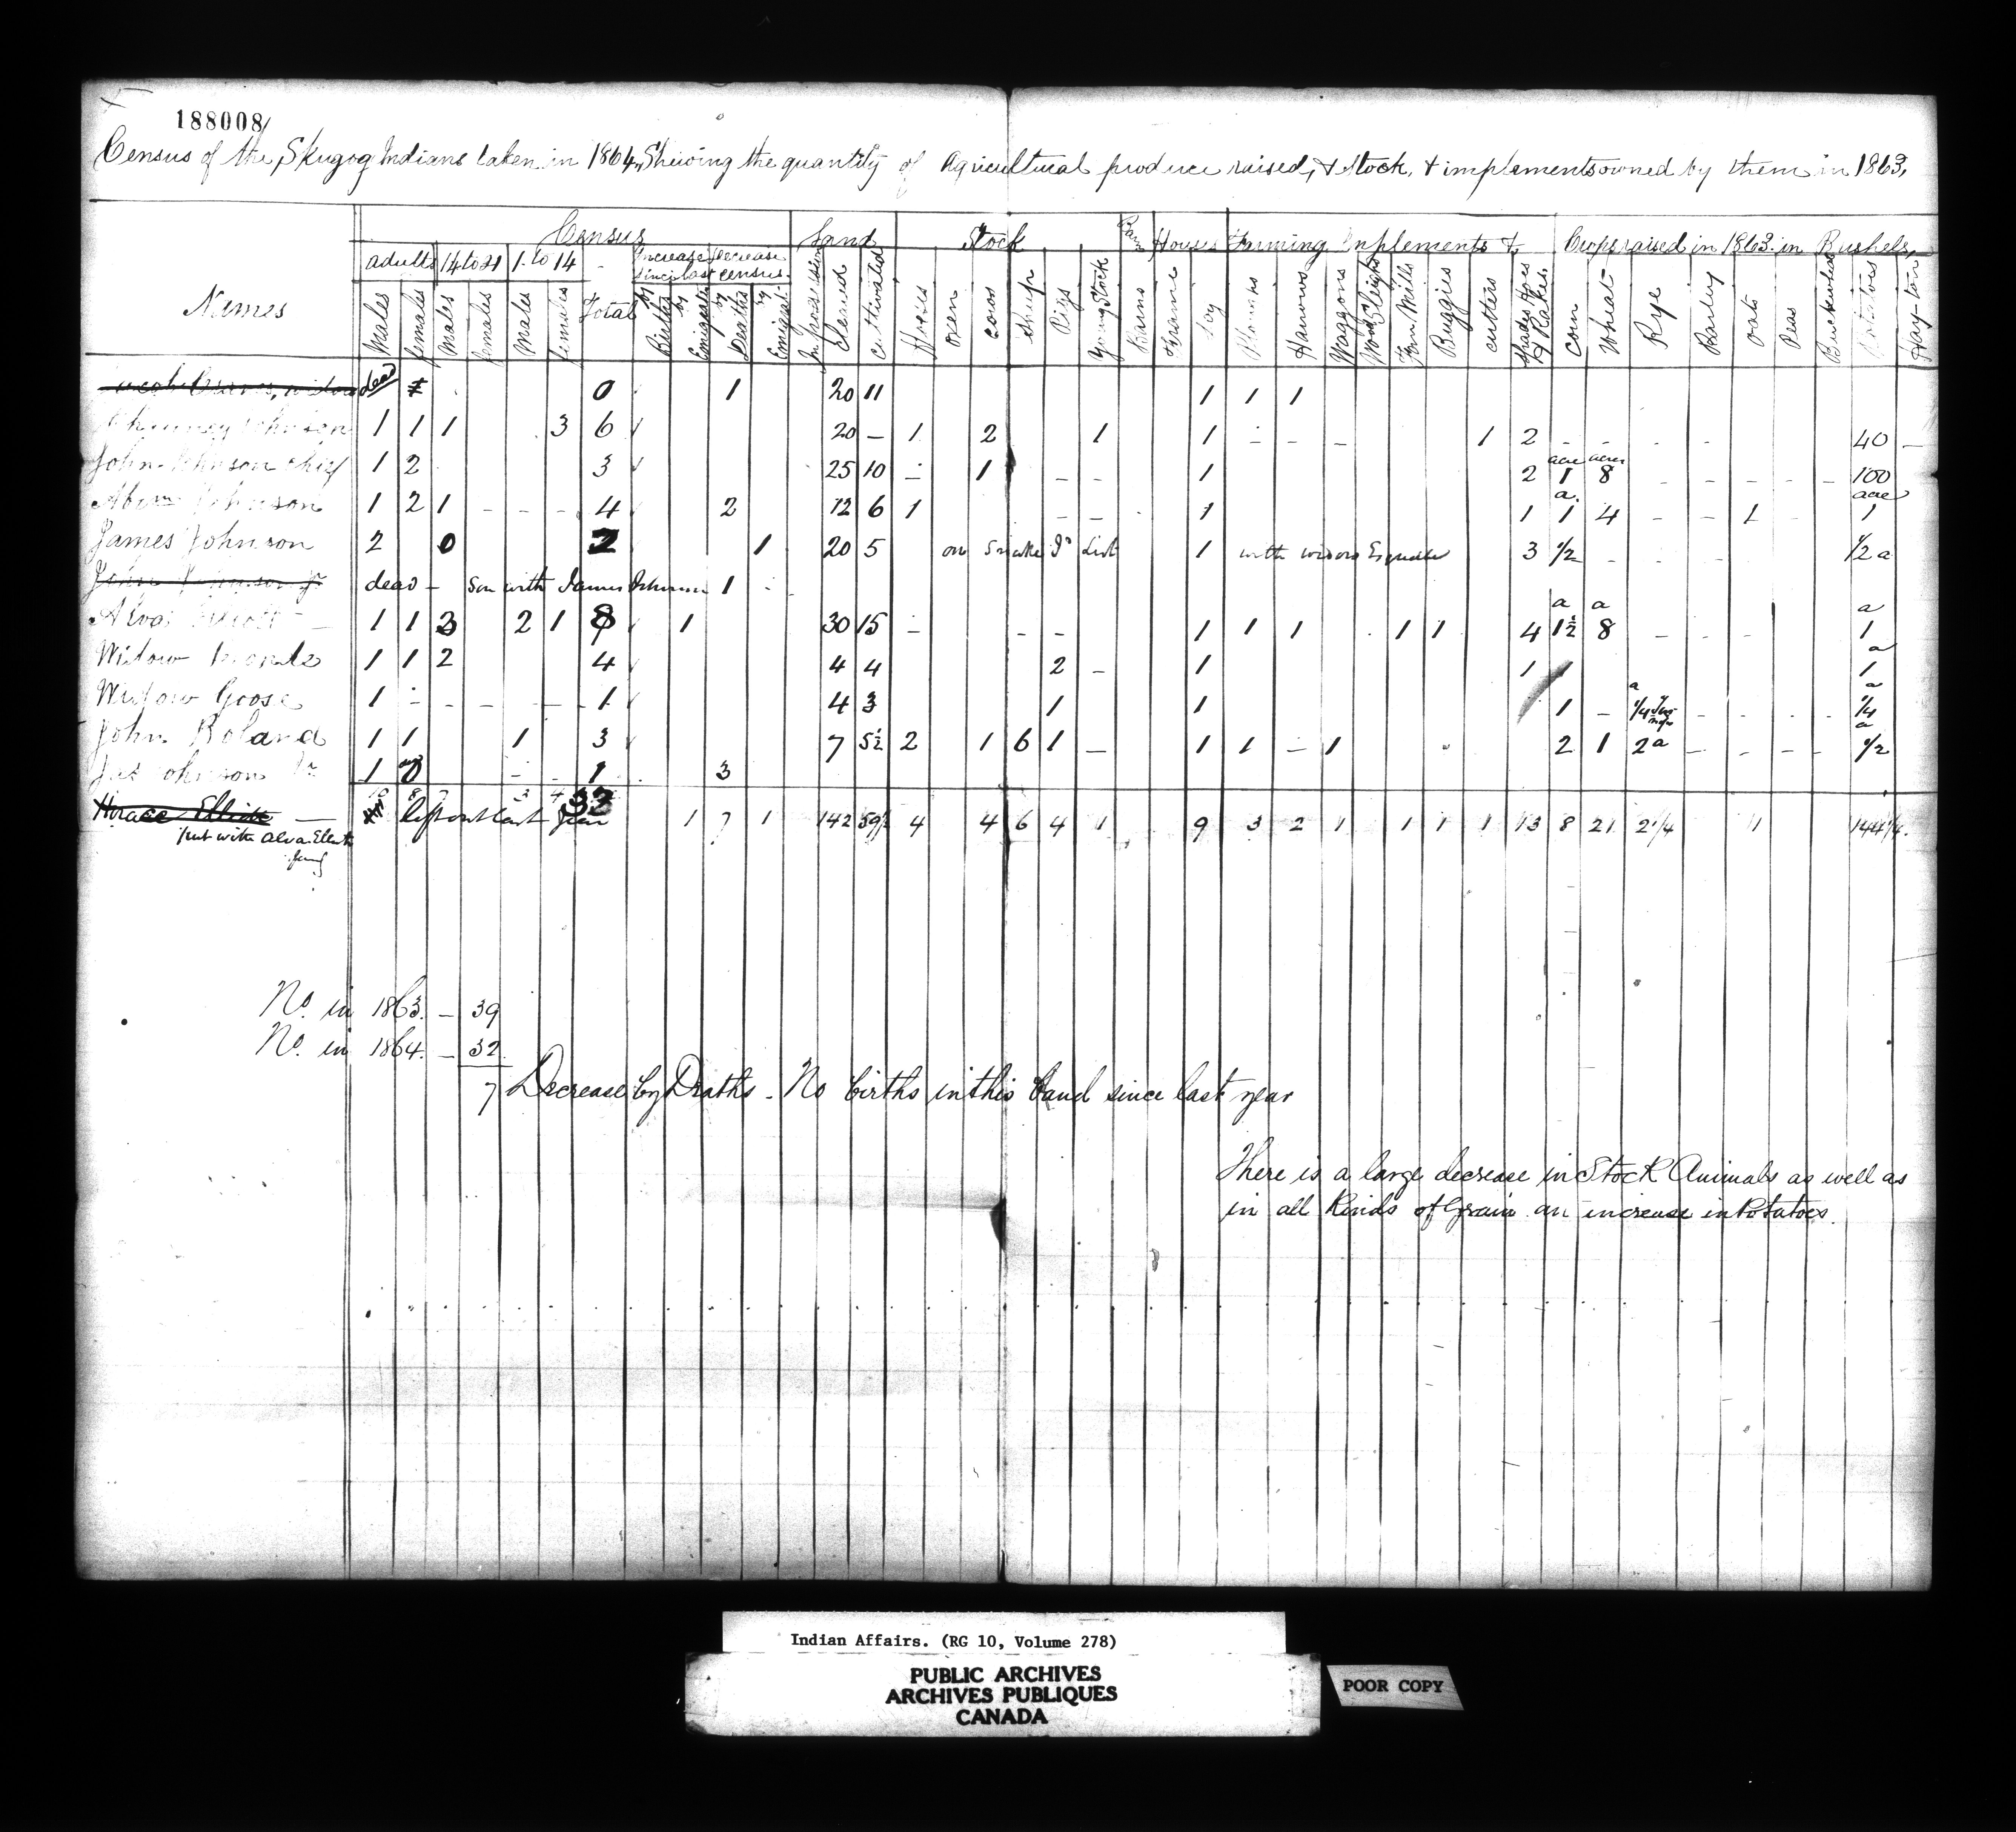 188008
Census of the Skugog Indians taken in 1864, Shewing the quantity of Agricultural produce raised, & Stock, & implements owned by them in 1863,
Names
Census Land Stock Houses Farming Inplements & Crops raised in 1863 in Bushels,
adults 14 to 21 1 to 14 Increase Decrease
since last census
Males females Males females Males females Total by Births by Emigrat. by Deaths by Emigrat. In Possession Cleared Cultivated Horses Oxen cows Sheep Pigs Young Stock Barns Frame Log Ploughs Harrows Waggons Wood Sleighs Fan Mills Buggies cutters Spades Hoes & Rakes Corn Wheat Rye Barley Oats Peas Buckwheat Potatoes Hay-ton
dead 0 1 20 11 1 1 1
Johnson 1 1 1 3 6 20 – 1 2 1 1 – – – 1 2 – – – – 40 –
John Johnson chief 1 2 3 25 10 – 1 – – 1 2 acre 1 acres 8 – – – – – 100
Johnson 1 2 1 – – – 4 2 12 6 1 – – 1 1 a. 1 4 – – 1 – acre 1
James Johnson 2 0 2 1 20 5 on Snake Id List 1 with widow 3 1/2 – – – 1/2 a
dead – son with James Johnson 1
Alva 1 1 3 2 1 8 1 30 15 – – – 1 1 1 1 1 4 a 1½ a 8 – – – a 1
Widow 1 1 2 4 4 4 2 – 1 1 1 a 1
Widow Goose 1 – – – – – 1 4 3 1 1 1 – a 1/4 – – – – a 1/4
John Boland 1 1 1 3 7 5½ 2 1 6 1 – 1 1 – 1 2 1 2 a – – – – a 1/2
Johnson 1 0 – – 1 3
10 8 7 3 4 32
Horace Elliott – left out last year 1 7 1 142 59½ 4 4 6 4 1 9 3 2 1 1 1 1 13 8 21 2 1/4 1 144 1/4
put with Alva Elliott
No. in 1863. – 39
No. in 1864. – 32
7 Decrease by Deaths – No births in this band since last year
There is a large decrease in Stock Animals as well as
in all kinds of Grain an increase in Potatoes.
Indian Affairs. (RG 10, Volume 278)
PUBLIC ARCHIVES
ARCHIVES PUBLIQUES
CANADA
POOR COPY